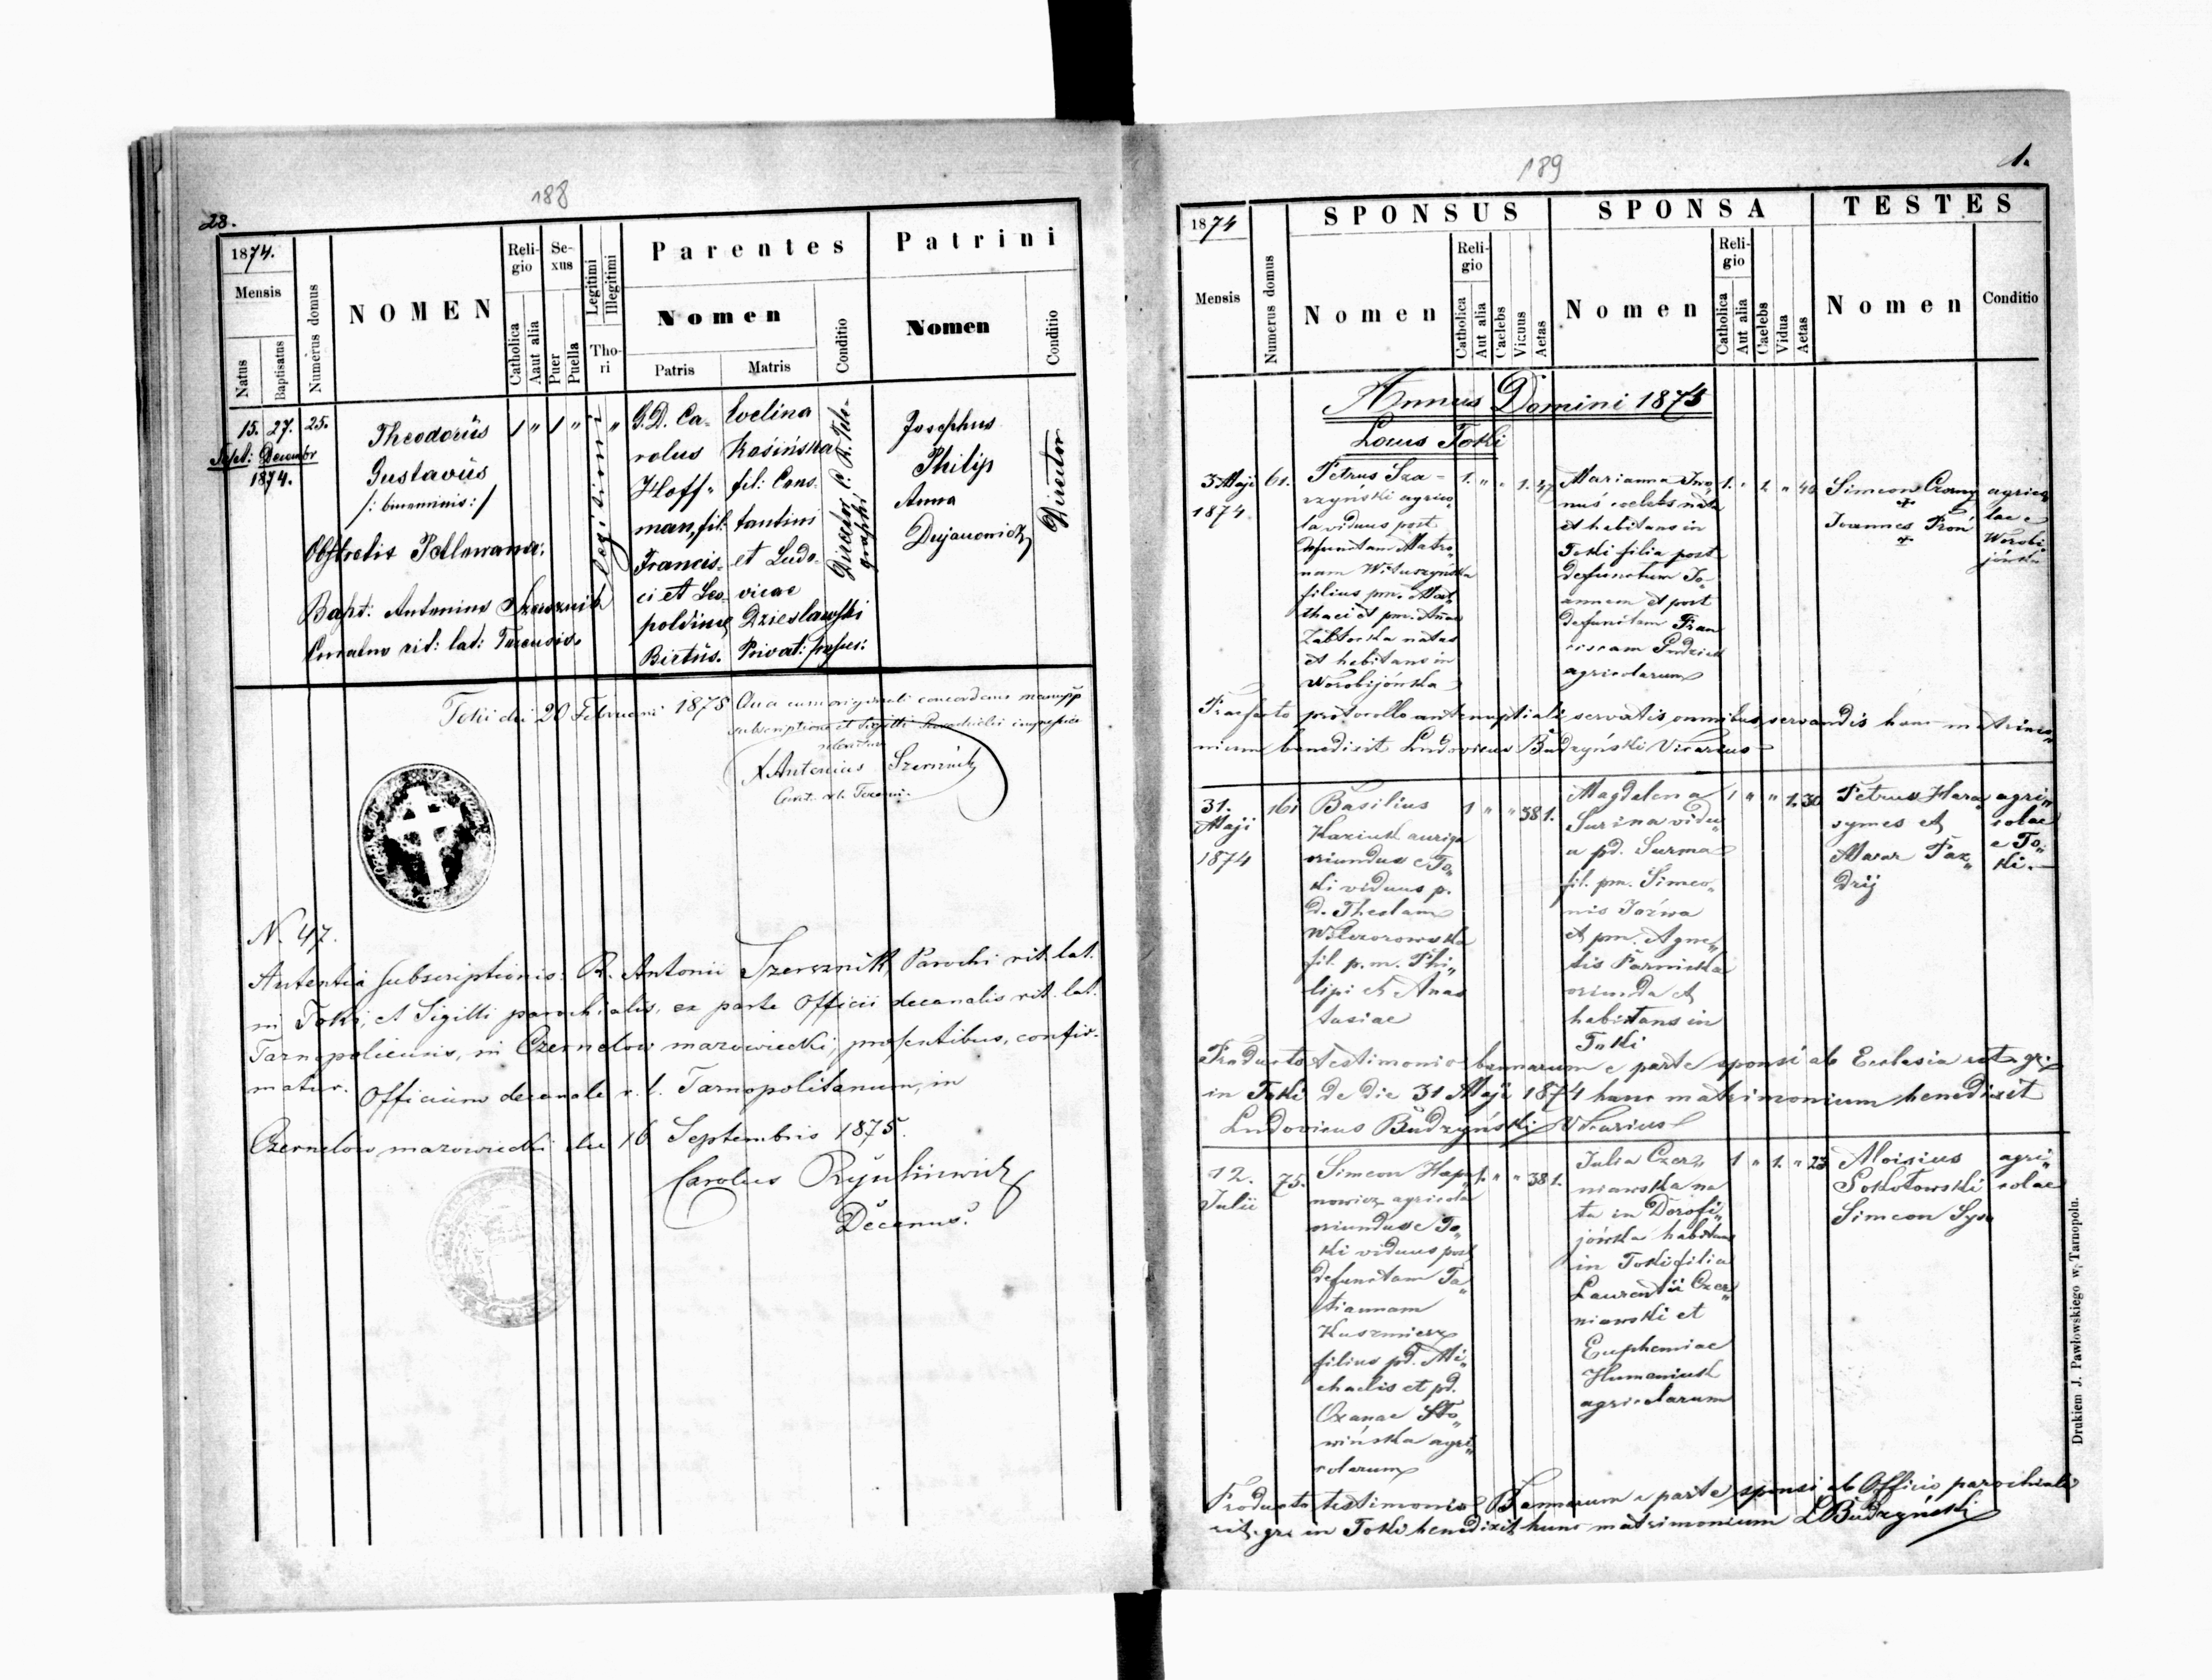 188
28.
1874.
Mensis
Natus
Baptisatus
Numerus domus
NOMEN
Religio
Catholica
Aut alia
Sexus
Puer
Puella
Legitimi
Illegitimi
Thori
Parentes
Nomen
Patris
Matris
Conditio
Patrini
Nomen
Conditio
15. 27. 25.
Sept: Decembr
1874.
Theodorus
Gustavus
/: binominis :/
Obstetrix
Bapt: Antonius Szersznik
rit: lat:
1 " 1 "
legitimi "
G.D. Ca-
rolus
Hoff-
man, fil:
Francis-
ci et Leo-
poldinae
Birtus.
Evelina
Kosińska
fil: Cons-
tantini
et Ludo-
vicae
Dzieslawski
Privat:
Director C. R. Tele-
graphi
Josephus
Philip
Anna
Director
Toki die 20 Februarii 1875 Quae cum originali concordans
subscriptione et Sigilli
Antonius Szersznik
N. 47.
subscriptionis: R. Antonii Szersznik Parochi rit. lat.
in Toki, et Sigilli parochialis, ex parte Officii decanalis rit. lat.
Tarnopoliensis, in Czernelow mazowiecki, praesentibus, confir-
matur. Officium decanale r. l. Tarnopolitanum, in
Czernelow mazowiecki die 16 Septembris 1875.
Carolus
Decanus.
189
1.
1874
Mensis
Numerus domus
SPONSUS
Nomen
Religio
Catholica
Aut alia
Caelebs
Vicuus
Aetas
SPONSA
Nomen
Religio
Catholica
Aut alia
Caelebs
Vidua
Aetas
TESTES
Nomen
Conditio
Annus Domini 1874
Locus Toki
3 Maji
1874
61.
Petrus Sza-
rzyński agrico-
la viduus post
defunctam Matro-
nam Wituszyńska
filius pm. Mat-
thaei et pm. Annae
Zabłocka natus
et habitans in
Worobijówka
1. " " 1. 47
Marianna Iwa-
nuś coelebs nata
et habitans in
Toki filia post
defunctum Jo-
annem et post
defunctam Fran-
ciscam Gudziak
agricolarum
1. " 1. " 40
Simeon Czorny
+
Joannes Proń
+
agrico-
lae e
Worobi-
jówka
protocollo antenuptiali servatis omnibus servandis hanc matrimo-
nium benedixit Ludovicus Budzyński Vicarius
31.
Maji
1874
161
Basilius
Kaziuk auriga
oriundus e To-
ki viduus p.
d. Theclam
fil. p. m. Phi-
lipi et Anas-
tasiae
1 " " 38 1.
Magdalena
Surma vidu-
a pd. Surma
fil. pm. Simeo-
nis Jaźwa
et pm. Agne-
tis Parnicka
oriunda et
habitans in
Toki
1 " " 1. 30
Petrus Hara-
symes et
Paz-
drij
agri-
colae
e To-
ki.
Producto testimonio bannorum e parte sponsi ab Ecclesia rit. gr.
in Toki de die 31 Maji 1874 hanc matrimonium benedixit
Ludovicus Budzyński Vicarius
12.
Julii
75.
Simeon Hapo-
nowicz agricola
oriundus e To-
ki viduus post
defunctam Ta-
tiannam
Kuszmiesz
filius pd. Mi-
chaelis et pd.
Oxanae Sło-
wińska agri-
colarum
1. " " 38 1.
Julia Czer-
niawska na-
ta in Dorofi-
jówka habitans
in Toki filia
Laurentii Czer-
niawski et
Euphemiae
Humeniuk
agricolarum
1 " 1. " 23
Aloisius
Sokołowski
Simeon
agri-
colae
Producto testimonio Bannorum e parte sponsi ab Officio parochiali
rit. gr. in Toki benedixit hunc matrimonium L Budzyński
Drukiem J. Pawłowskiego w Tarnopolu.